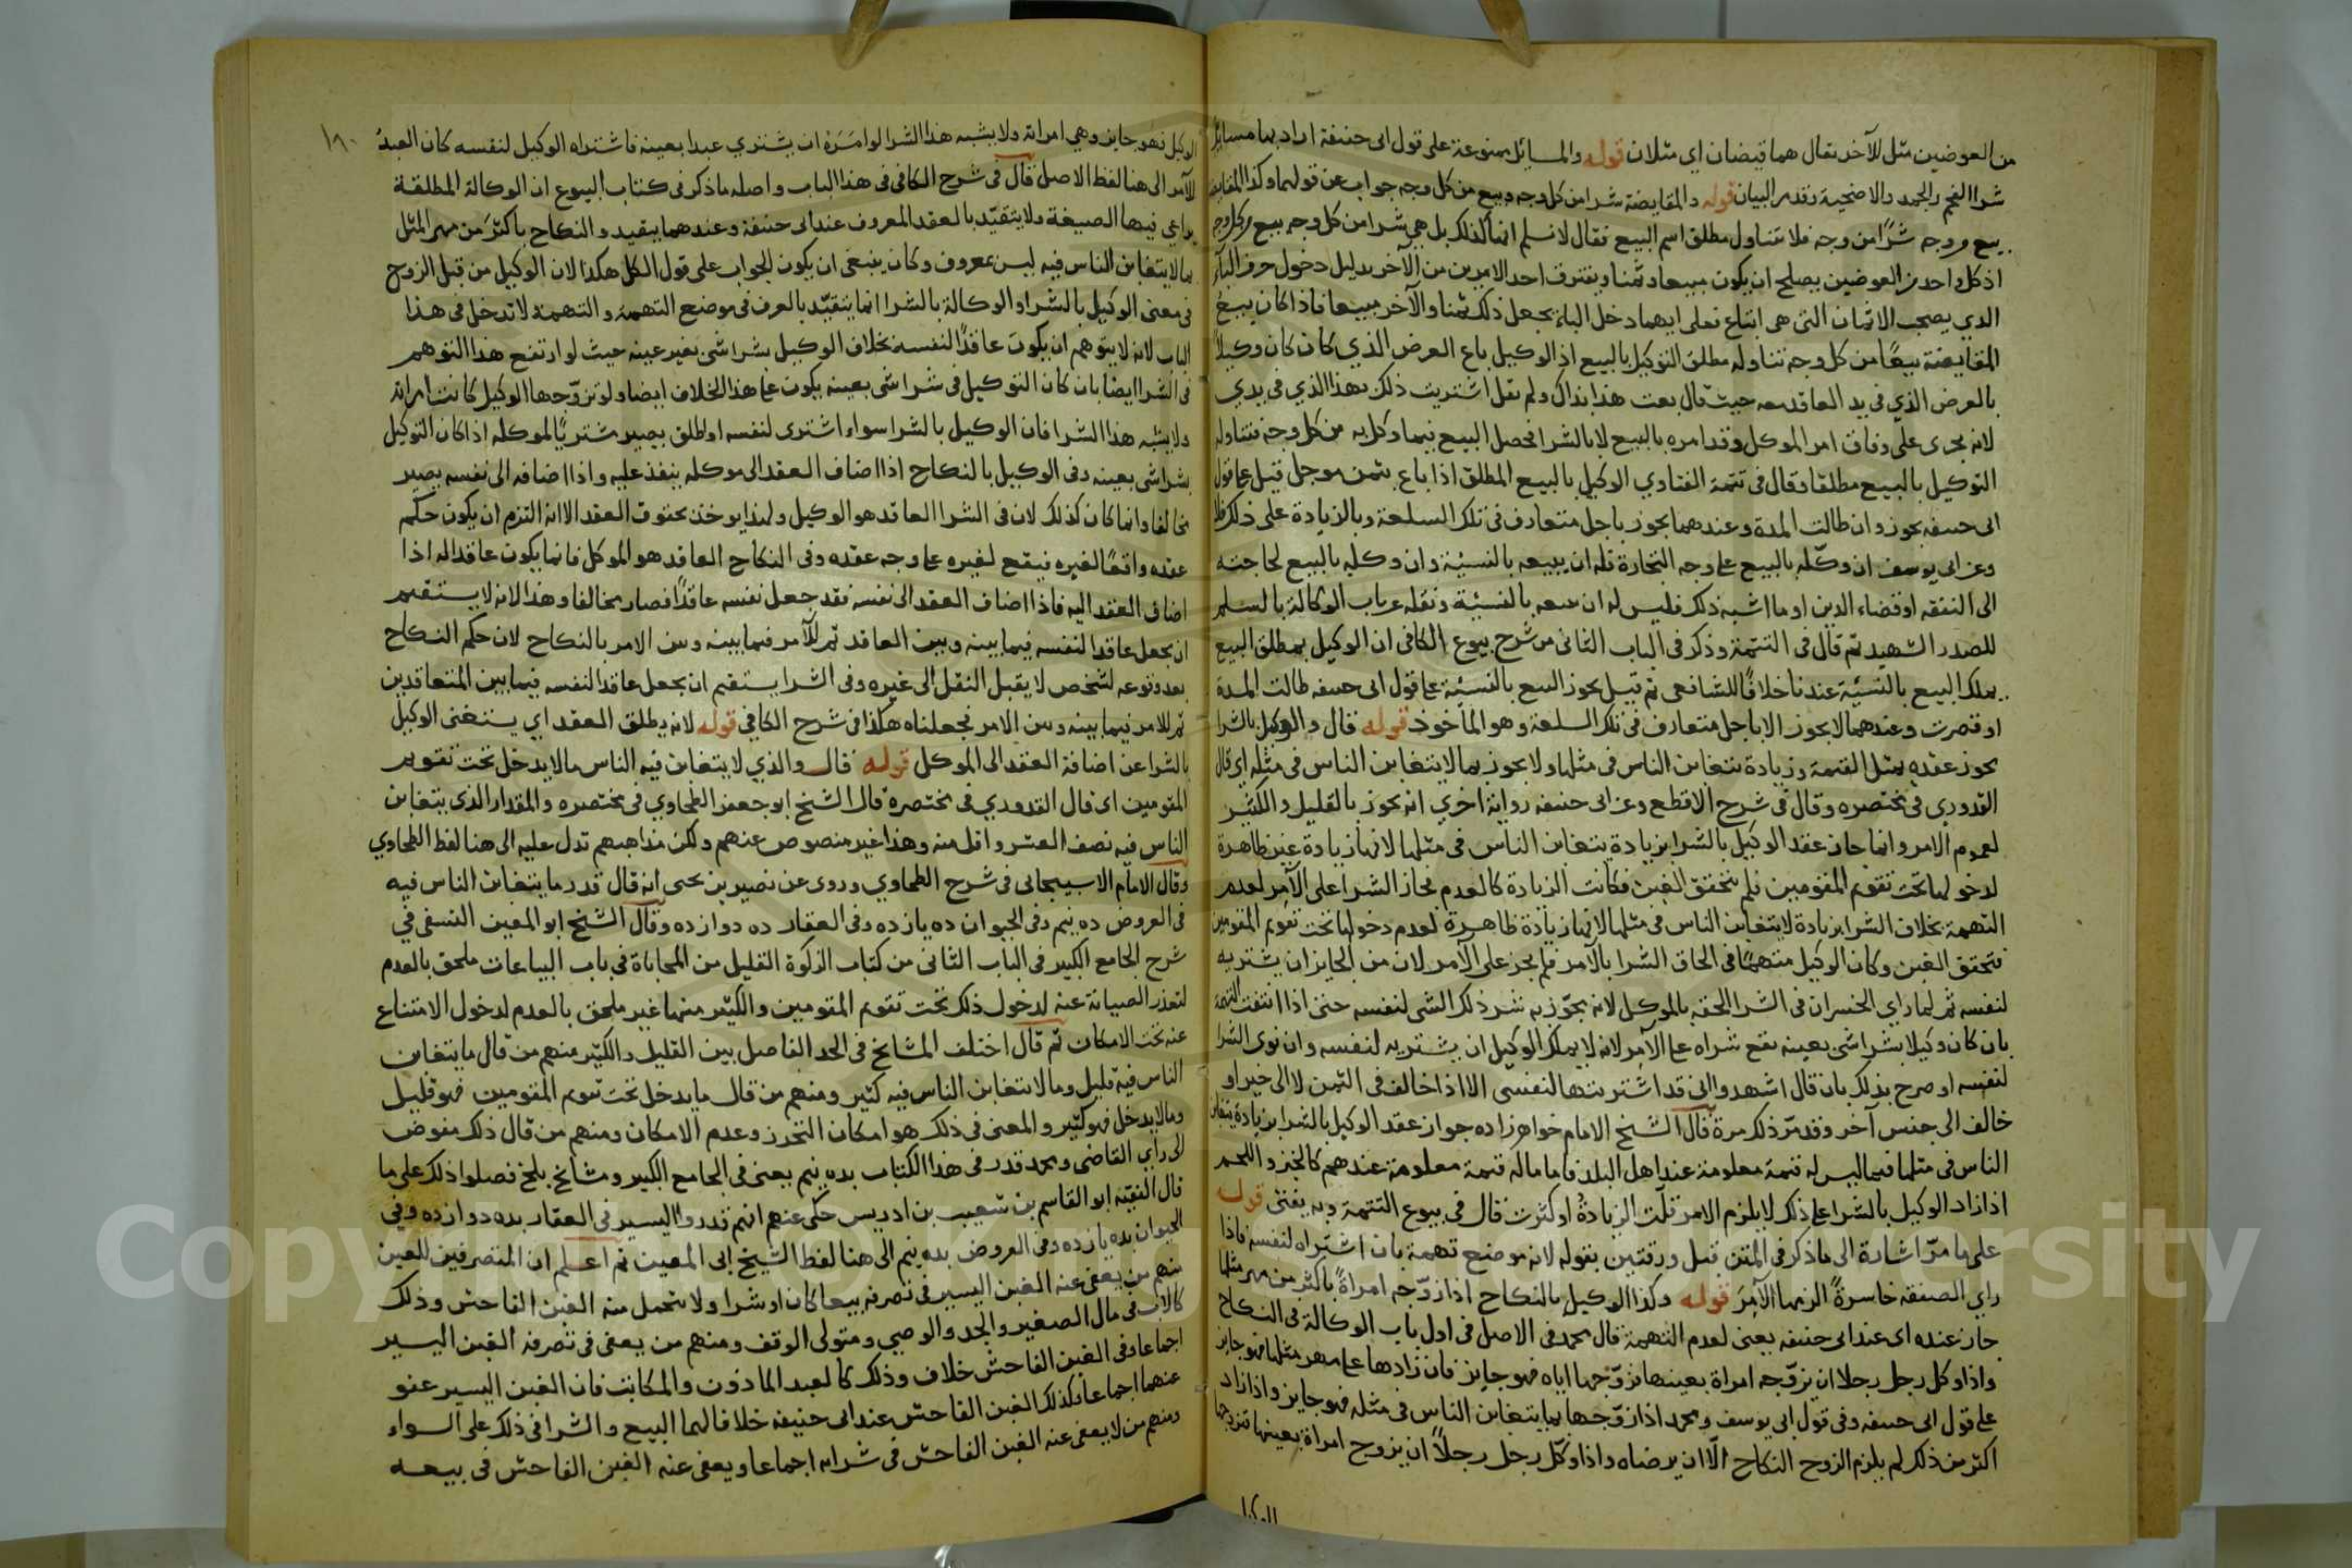 من العوضين مثل للآخر يقال هما قيضان اي مثلان قوله والمسائل ممنوعة على قول ابى حنيفة اراد بها مسائل
شرا الفحم والجمد والاضحية وقد مر البيان قوله والمقايضة شرا من كل وجه وبيع من كل وجه جواب عن قولهما وكذا المقايضة
بيع من وجه شرًا من وجه فلا يتناول مطلق اسم البيع فقال لا نسلم انها كذلك بل هي شرا من كل وجه بيع من كل وجه
اذ كل واحد من العوضين يصلح ان يكون مبيعا وثمنا ويفترق احد الامرين من الآخر بدليل دخول حرف الباء
الذي يصحب الاثمان التى هى اتباع فعلى ايهما دخل الباء يجعل ذلك ثمنا والآخر مبيعا فاذا كان بيع
المقايضة بيعًا من كل وجه تناوله مطلق التوكيل بالبيع اذ الوكيل باع العرض الذي كان كان وكيلا
بالعرض الذي في يد العاقد معه حيث قال بعت هذا بذاك ولم يقل اشتريت ذلك بهذا الذي في يدي
لانه يجرى على وفاق امر الموكل وقد امره بالبيع لا بالشرا فحصل البيع فيما وكل به من كل وجه فتناوله
التوكيل بالبيع مطلقا وقال في تتمة الفتاوي الوكيل بالبيع المطلق اذا باع بثمن موجل قيل على قول
ابى حنيفه يجوز وان طالت المدة وعندهما يجوز باجل متعارف في تلك السلعة وبالزيادة على ذلك فلا
وعن ابى يوسف ان وكّله بالبيع على وجه التجارة فله ان يبيعه بالنسيئة وان وكله بالبيع لحاجته
الى النفقه او قضاء الدين او ما اشبه ذلك فليس له ان يبيعه بالنسيئة ونقله عن باب الوكالة بالسلم
للصدر الشهيد ثم قال في التتمة وذكر في الباب الثانى من شرح بيوع الكافى ان الوكيل بمطلق البيع
يملك البيع بالنسيئة عندنا خلافًا للشافعى ثم قيل يجوز البيع بالنسيئة على قول ابى حنيفه طالت المدة
او قصرت وعندهما لا يجوز الا باجل متعارف في تلك السلعة وهو المأخوذ قوله قال والوكيل بالشرا
يجوز عقده بمثل القيمة وزيادة يتغابن الناس في مثلها ولا يجوز بما لا يتغابن الناس في مثله اي قال
القدوري في مختصره وقال في شرح الاقطع وعن ابى حنيفه رواية اخري انه يجوز بالقليل والكثير
لعموم الامر وانما جاز عقد الوكيل بالشرا بزيادة يتغابن الناس في مثلها لانها زيادة غير ظاهرة
لدخولها تحت تقويم المقومين فلم يتحقق الغبن فكانت الزيادة كالعدم فجاز الشرا على الآمر لعدم
التهمة بخلاف الشرا بزيادة لا يتغابن الناس في مثلها لانها زيادة ظاهرة لعدم دخولها تحت تقويم المقومين
فتحقق الغبن وكان الوكيل متهمًا في الحاق الشرا بالآمر فلم يجز على الآمر لان من الجايز ان يشتريه
لنفسه ثم لما راي الخسران في الشرا الحقه بالموكل لانه يجوّز به شر ذلك الشى لنفسه حتى اذا انتفت التهمة
بان كان وكيلا بشرا شى بعينه يقع شراه على الآمر لانه لا يملك الوكيل ان يشتريه لنفسه وان نوى الشرا
لنفسه او صرح بذلك بان قال اشهدوا انى قد اشتريتها لنفسى الا اذا خالف في الثمن لا الى خير او
خالف الى جنس آخر وقد مرّ ذلك مرة قال الشيخ الامام خواهرزاده جواز عقد الوكيل بالشرا بزيادة يتغابن
الناس في مثلها فيما ليس له قيمة معلومة عند اهل البلد فاما ما له قيمة معلومة عندهم كالخبز واللحم
اذا زاد الوكيل بالشرا على ذلك لا يلزم الامر قلّت الزيادةُ او كثرت قال في بيوع التتمة وبه يفتى قوله
على ما مرّ اشارة الى ما ذكر في المتن قبل ورقتين بقوله لانه موضع تهمة بان اشتراه لنفسه فاذا
راي الصفقه خاسرةً الزمها الآمِرَ قوله وكذا الوكيل بالنكاح اذا زوّجه امراةً باكثر من مهر مثلها
جاز عنده اى عند ابى حنيفه يعنى لعدم التهمة قال محمد في الاصل في اول باب الوكالة في النكاح
واذا وكل رجل رجلا ان يزوّجه امراة بعينها فزوّجها اياه فهو جايز فان زادها على مهر مثلها فهو جايز
على قول ابى حنيفه وفي قول ابى يوسف ومحمد اذا زوّجها بما يتغابن الناس في مثله فهو جايز واذا زاد
اكثر من ذلك لم يلزم الزوج النكاح الّا ان يرضاه واذا وكّل رجل رجلاً ان يزوج امراة بعينها فتزوجها
الوكيل
١٨٠
الوكيل فهو جايز وهي امراته ولا يشبه هذا الشرا لو امَرَهُ ان يشتري عبدا بعينه فاشتراه الوكيل لنفسه كان العبدُ
للآمر الى هنا لفظ الاصل قال في شرح الكافى في هذا الباب واصله ما ذكر في كتاب البيوع ان الوكالة المطلقة
يراعي فيها الصيغة ولا يتقيّد بالعقد المعروف عند ابى حنيفة وعندهما يتقيد والنكاح باكثَرَ من مهر المثل
بما لا يتغابن الناس فيه ليس بمعروف وكان ينبغى ان يكون الجواب على قول الكل هكذا لان الوكيل من قبل الزوج
في معنى الوكيل بالشرا والوكالة بالشرا انما يتقيّد بالعرف في موضع التهمة والتهمة لا تدخل في هذا
الباب لانه لا يتوهم ان يكون عاقدًا لنفسه بخلاف الوكيل بشرا شى بغير عينه حيث لو ارتفع هذا التوهم
في الشرا ايضا بان كان التوكيل في شرا شى بعينه يكون على هذا الخلاف ايضا ولو تزوّجها الوكيل كانت امراته
ولا يشبه هذا الشرا فان الوكيل بالشرا سواء اشترى لنفسه او اطلق يصير مشتريًا لموكله اذا كان التوكيل
بشرا شى بعينه وفي الوكيل بالنكاح اذا اضاف العقد الى موكله ينفذ عليه واذا اضافه الى نفسه يصير
مخالفا وانما كان كذلك لان في الشرا العاقد هو الوكيل ولهذا يوخذ بحقوق العقد الا انه التزم ان يكون حكم
عقده واقعًا لغيره فيقع لغيره على وجه عقده وفي النكاح العاقد هو الموكل فانما يكون عاقدا له اذا
اضاف العقد اليه فاذا اضاف العقد الى نفسه فقد جعل نفسه عاقدًا فصار مخالفا وهذا لانه لا يستقيم
ان يجعل عاقدا لنفسه فيما بينه وبين العاقد ثم للآمر فيما بينه وبين الامر بالنكاح لان حكم النكاح
بعد وقوعه لشخص لا يقبل النقل الى غيره وفي الشرا يستقيم ان يجعل عاقدا لنفسه فيما بين المتعاقدين
ثم للامر فيما بينه وبين الامر فجعلناه هكذا في شرح الكافي قوله لانه يطلق العقد اي يستغنى الوكيل
بالشرا عن اضافة العقد الى الموكل قوله قال والذي لا يتغابن فيه الناس ما لا يدخل تحت تقويم
المقومين اى قال القدوري في مختصره قال الشيخ ابو جعفر الطحاوي في مختصره والمقدار الذي يتغابن
الناس فيه نصف العشر واقل منه وهذا غير منصوص عنهم ولكن مذاهبهم تدل عليه الى هنا لفظ الطحاوي
وقال الامام الاسبيجابى في شرح الطحاوي وروى عن نصير بن يحيى انه قال قدر ما يتغابن الناس فيه
في العروض ده نيم وفي الحيوان ده يازده وفي العقار ده دوازده وقال الشيخ ابو المعين النسفى في
شرح الجامع الكبير في الباب الثانى من كتاب الزكوة القليل من المحاباة في باب البياعات ملحق بالعدم
لتعذر الصيانة عنه لدخول ذلك تحت تقويم المقومين والكثير منها غير ملحق بالعدم لدخول الامتناع
عنه تحت الامكان ثم قال اختلف المشايخ في الحد الفاصل بين القليل والكثير منهم من قال ما يتغابن
الناس فيه قليل وما لا يتغابن الناس فيه كثير ومنهم من قال ما يدخل تحت تقويم المقومين فهو قليل
وما لا يدخل فهو كثير والمعنى في ذلك هو امكان التحرز وعدم الامكان ومنهم من قال ذلك مفوض
الى راي القاضى ومحمد قدر في هذا الكتاب بده نيم يعنى في الجامع الكبير ومشايخ بلخ فصلوا ذلك على ما
قال الفقيه ابو القاسم بن شعيب بن ادريس حكى عنهم انهم قدروا اليسير في العقار بده دوازده وفي
الحيوان بده يازده وفي العروض بده نيم الى هنا لفظ الشيخ ابى المعين ثم اعلم ان المتصرفين للغير
منهم من يعفى عنه الغبن اليسير في تصرفه بيعا كان او شرا ولا يتحمل منه الغبن الفاحش وذلك
كالاب في مال الصغير والجد والوصي ومتولى الوقف ومنهم من يعفى في تصرفه الغبن اليسير
اجماعا وفي الغبن الفاحش خلاف وذلك كالعبد الماذون والمكاتب فان الغبن اليسير عفو
عنهما اجماعا فكذلك الغبن الفاحش عند ابى حنيفه خلافا لهما البيع والشرا في ذلك على السواء
ومنهم من لا يعفى عنه الغبن الفاحش في شرايه اجماعا ويعفى عنه الغبن الفاحش في بيعه